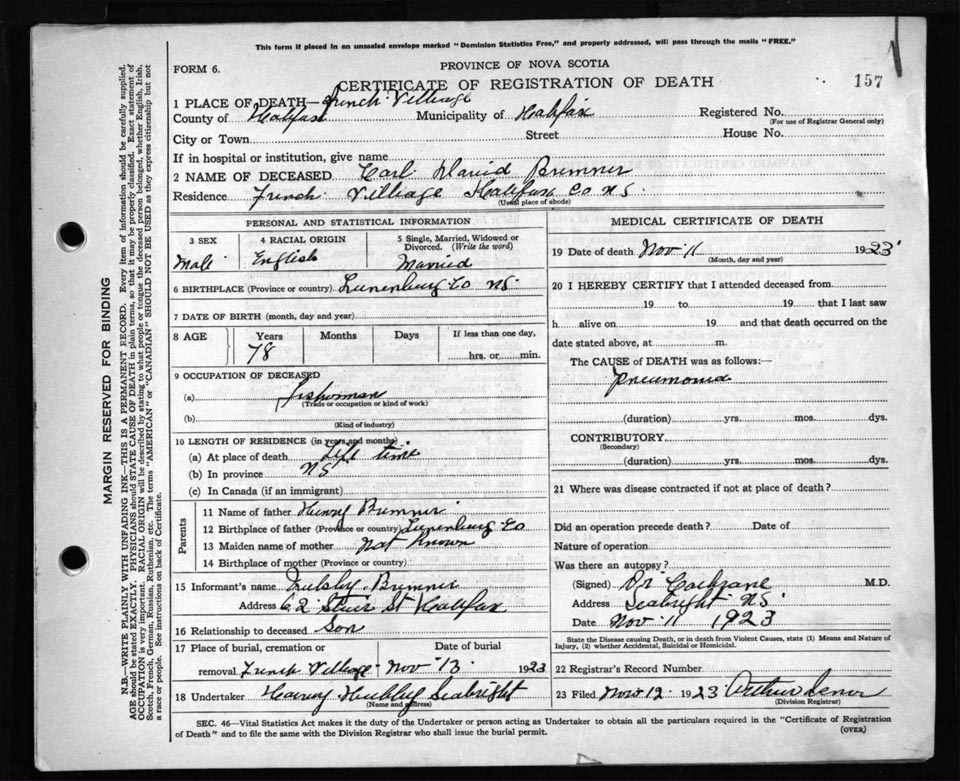 This form if placed in an unsealed envelope marked "Dominion Statistics Free," and properly addressed, will pass through the mails "FREE."
FORM 6.
PROVINCE OF NOVA SCOTIA
CERTIFICATE OF REGISTRATION OF DEATH
157
1 PLACE OF DEATH—French Village
County of Halifax Municipality of Halifax Registered No.
(For use of Registrar General only)
City or Town Street House No.
If in hospital or institution, give name
2 NAME OF DECEASED Carl David Bremner
Residence French Village Halifax Co N S.
(Usual place of abode)
PERSONAL AND STATISTICAL INFORMATION
3 SEX 4 RACIAL ORIGIN 5 Single, Married, Widowed or Divorced. (Write the word)
Male English Married
6 BIRTHPLACE (Province or country) Lunenburg Co NS.
7 DATE OF BIRTH (month, day and year)
8 AGE Years Months Days If less than one day,
78 hrs. or min.
9 OCCUPATION OF DECEASED
(a) fisherman
(Trade or occupation or kind of work)
(b)
(Kind of industry)
10 LENGTH OF RESIDENCE (in years and months)
(a) At place of death life time
(b) In province NS
(c) In Canada (if an immigrant)
Parents
11 Name of father Henry Bremner
12 Birthplace of father (Province or country) Lunenburg Co
13 Maiden name of mother Not Known
14 Birthplace of mother (Province or country)
15 Informant's name Bremner
Address 62 St Halifax
16 Relationship to deceased Son
17 Place of burial, cremation or Date of burial
removal French Village Nov 13 1923
18 Undertaker Harvey Hubley Seabright
(Name and address)
MEDICAL CERTIFICATE OF DEATH
19 Date of death Nov 11 1923
(Month, day and year)
20 I HEREBY CERTIFY that I attended deceased from
19 to 19 that I last saw
h alive on 19 and that death occurred on the
date stated above, at m.
The CAUSE of DEATH was as follows:—
Pneumonia
(duration) yrs. mos. dys.
CONTRIBUTORY
(Secondary)
(duration) yrs. mos. dys.
21 Where was disease contracted if not at place of death?
Did an operation precede death? Date of
Nature of operation
Was there an autopsy?
(Signed) Dr Cochrane M.D.
Address Seabright NS
Date Nov 11 1923
State the Disease causing Death, or in death from Violent Causes, state (1) Means and Nature of
Injury, (2) whether Accidental, Suicidal or Homicidal.
22 Registrar's Record Number
23 Filed Nov 12 1923 Arthur
(Division Registrar)
SEC. 46—Vital Statistics Act makes it the duty of the Undertaker or person acting as Undertaker to obtain all the particulars required in the "Certificate of Registration
of Death" and to file the same with the Division Registrar who shall issue the burial permit.
(OVER)
MARGIN RESERVED FOR BINDING
N.B.—WRITE PLAINLY WITH UNFADING INK—THIS IS A PERMANENT RECORD. Every item of information should be carefully supplied.
AGE should be stated EXACTLY. PHYSICIANS should STATE CAUSE OF DEATH in plain terms, so that it may be properly classified. Exact statement of
OCCUPATION is very important. RACIAL ORIGIN will be described by stating to what people or tongue the deceased person belonged, whether English, Irish,
Scotch, French, German, Russian, Ruthenian, etc. The terms "AMERICAN" or "CANADIAN" SHOULD NOT BE USED as they express citizenship but not
a race or people. See instructions on back of Certificate.